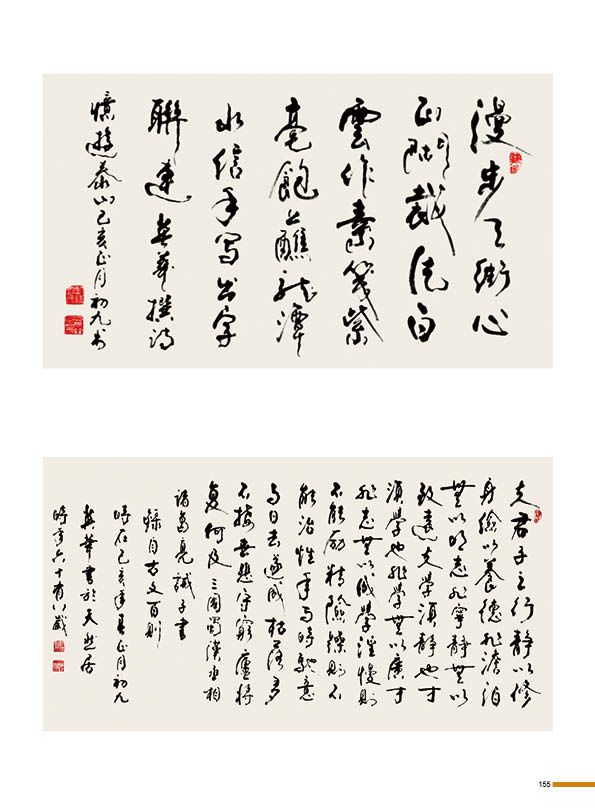 漫步天街心
正閒裁白
雲作素箋紫
毫飽蘸龍潭
水信手寫出字
聯連英華撰詩
憶遊泰山己亥正月初九書
夫君子之行靜以修
身儉以養德非澹泊
無以明志非寧靜無以
致遠夫學須靜也才
須學也非學無以廣才
非志無以成學淫慢則
不能勵精險躁則不
能治性年與時馳意
與日去遂成枯落多
不接世悲守窮廬將
復何及三國蜀漢丞相
諸葛亮誡子書
錄自古文百則
時在己亥年春正月初九
英華書於天然居
時年六十有八歲
155